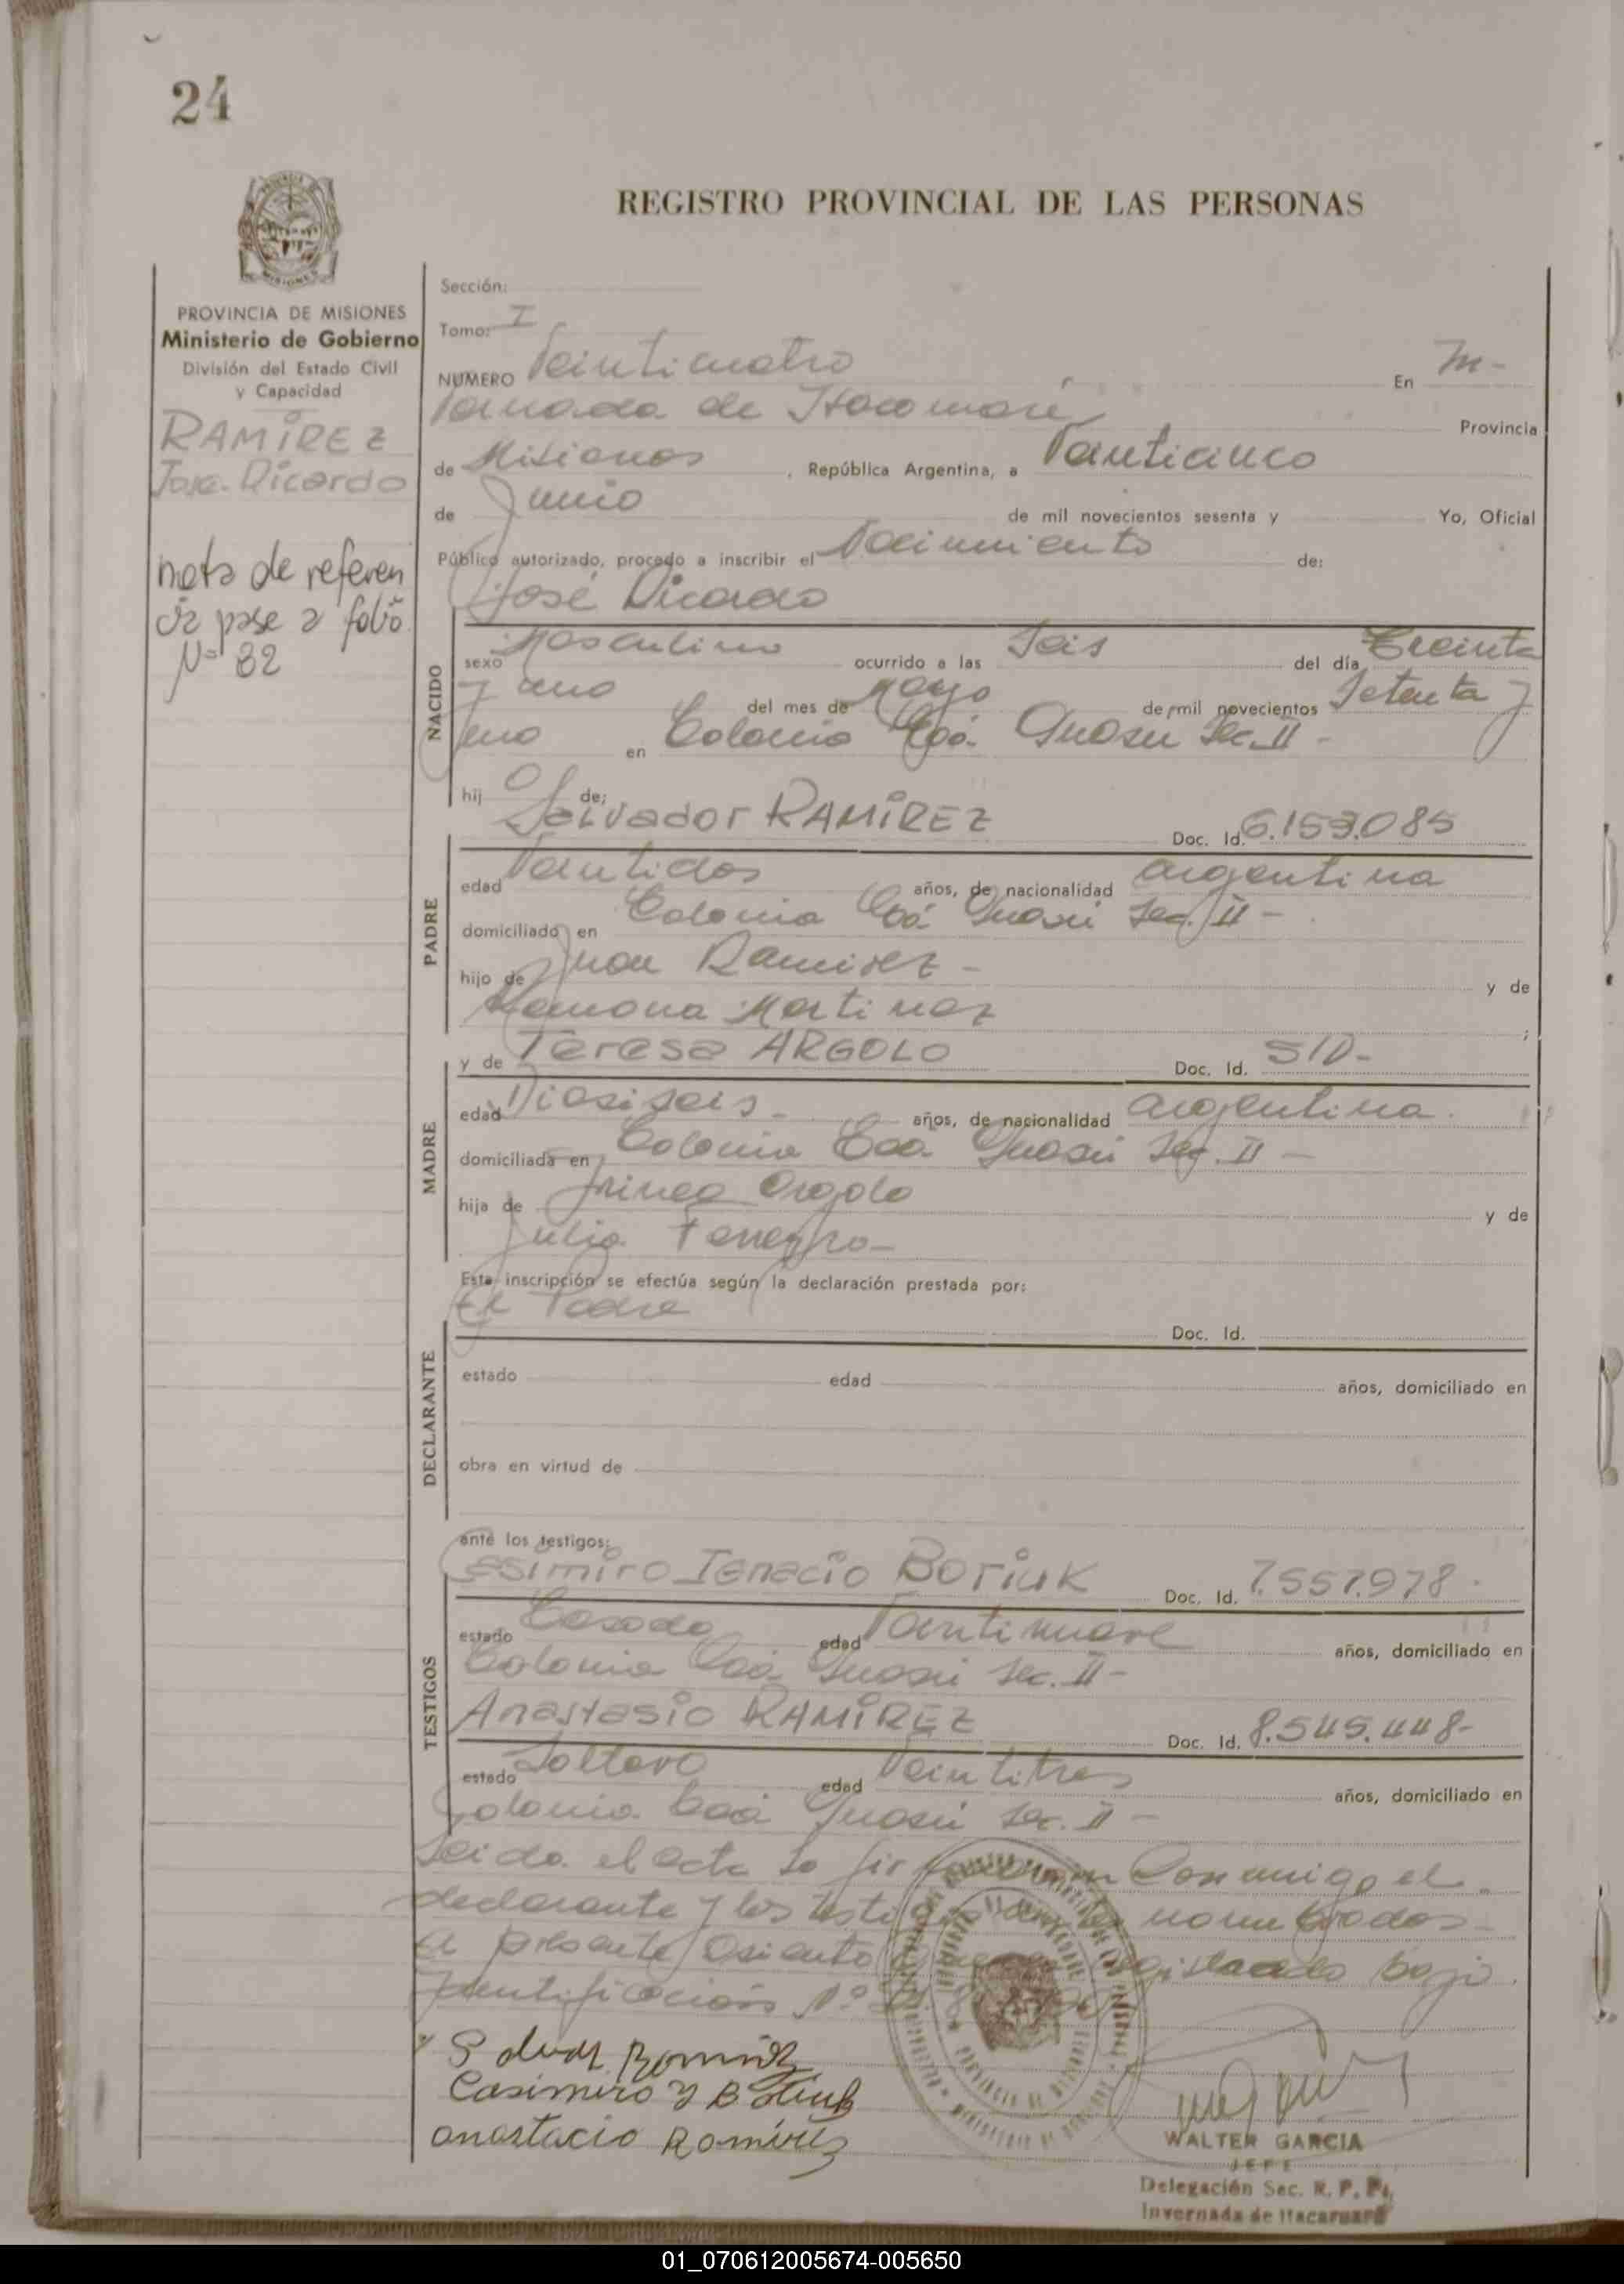 24
REGISTRO PROVINCIAL DE LAS PERSONAS
PROVINCIA DE MISIONES
Ministerio de Gobierno
División del Estado Civil
y Capacidad
RAMÍREZ
José Ricardo
nota de referen
cia pase a folio
Nº 32
Sección:
Tomo: I
NUMERO Veinticuatro En In-
vernada de Itacaruaré Provincia
de Misiones, República Argentina, a Veinticinco
de Junio de mil novecientos sesenta y Yo, Oficial
Público autorizado, procedo a inscribir el Nacimiento de:
José Ricardo
NACIDO
sexo Masculino ocurrido a las Seis del día Treinta
y uno del mes de Mayo de mil novecientos Setenta y
uno en Colonia Caá Guasu Sec. II -
hijo de:
PADRE
Salvador RAMÍREZ Doc. Id. 6.153.085
edad Veintidos años, de nacionalidad argentina
domiciliado en Colonia Caá Guasú Sec. II -
hijo de Juan Ramirez - y de
Ramona Martinez ;
MADRE
y de Teresa ARGOLO Doc. Id. S/D-
edad Dieciseis- años, de nacionalidad argentina.
domiciliada en Colonia Caá Guasú Sec. II -
hija de Irineo Argolo y de
Julia
Esta inscripción se efectúa según la declaración prestada por:
El Padre
DECLARANTE
Doc. Id.
estado edad años, domiciliado en
obra en virtud de
ante los testigos:
TESTIGOS
Casimiro Ignacio BORIUK Doc. Id. 7.557.978-
estado Casado edad Veintinueve años, domiciliado en
Colonia Caá Guasú Sec. II -
Anastasio RAMÍREZ Doc. Id. 8.545.448-
estado Soltero edad Veintitres años, domiciliado en
Colonia Caá Guasú Sec. II -
Leida el acta la firman Conmigo el
declarante y los testigos nombrados-
El presente asiento registrado bajo
Identificación Nº
Ramírez
Casimiro Y Boriuk
Anastacio Ramírez
WALTER GARCIA
JEFE
Delegación Sec. R. P. P.
Invernada de Itacaruaré
01_070612005674-005650